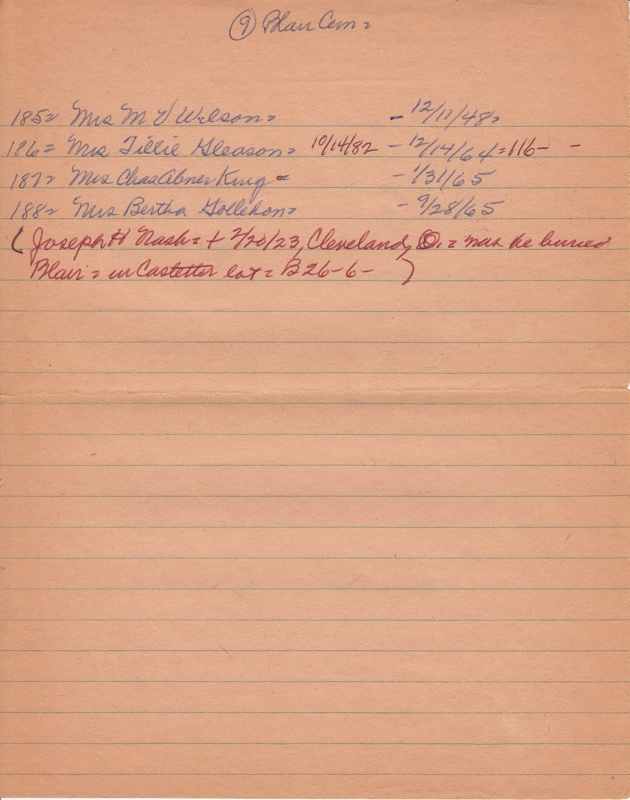 ⑨ Blair Cem=
185= Mrs M V Wilson= - 12/11/48=
186= Mrs Tillie Gleason= 10/14/82 - 12/14/64=116- -
187= Mrs Chas Abner King = - 1/31/65
188= Mrs Bertha Gollehon= - 9/28/65
(Joseph H Nash= + 2/20/23, Cleveland, O.= he buried
Blair= in Castetter lot= B26-6- )